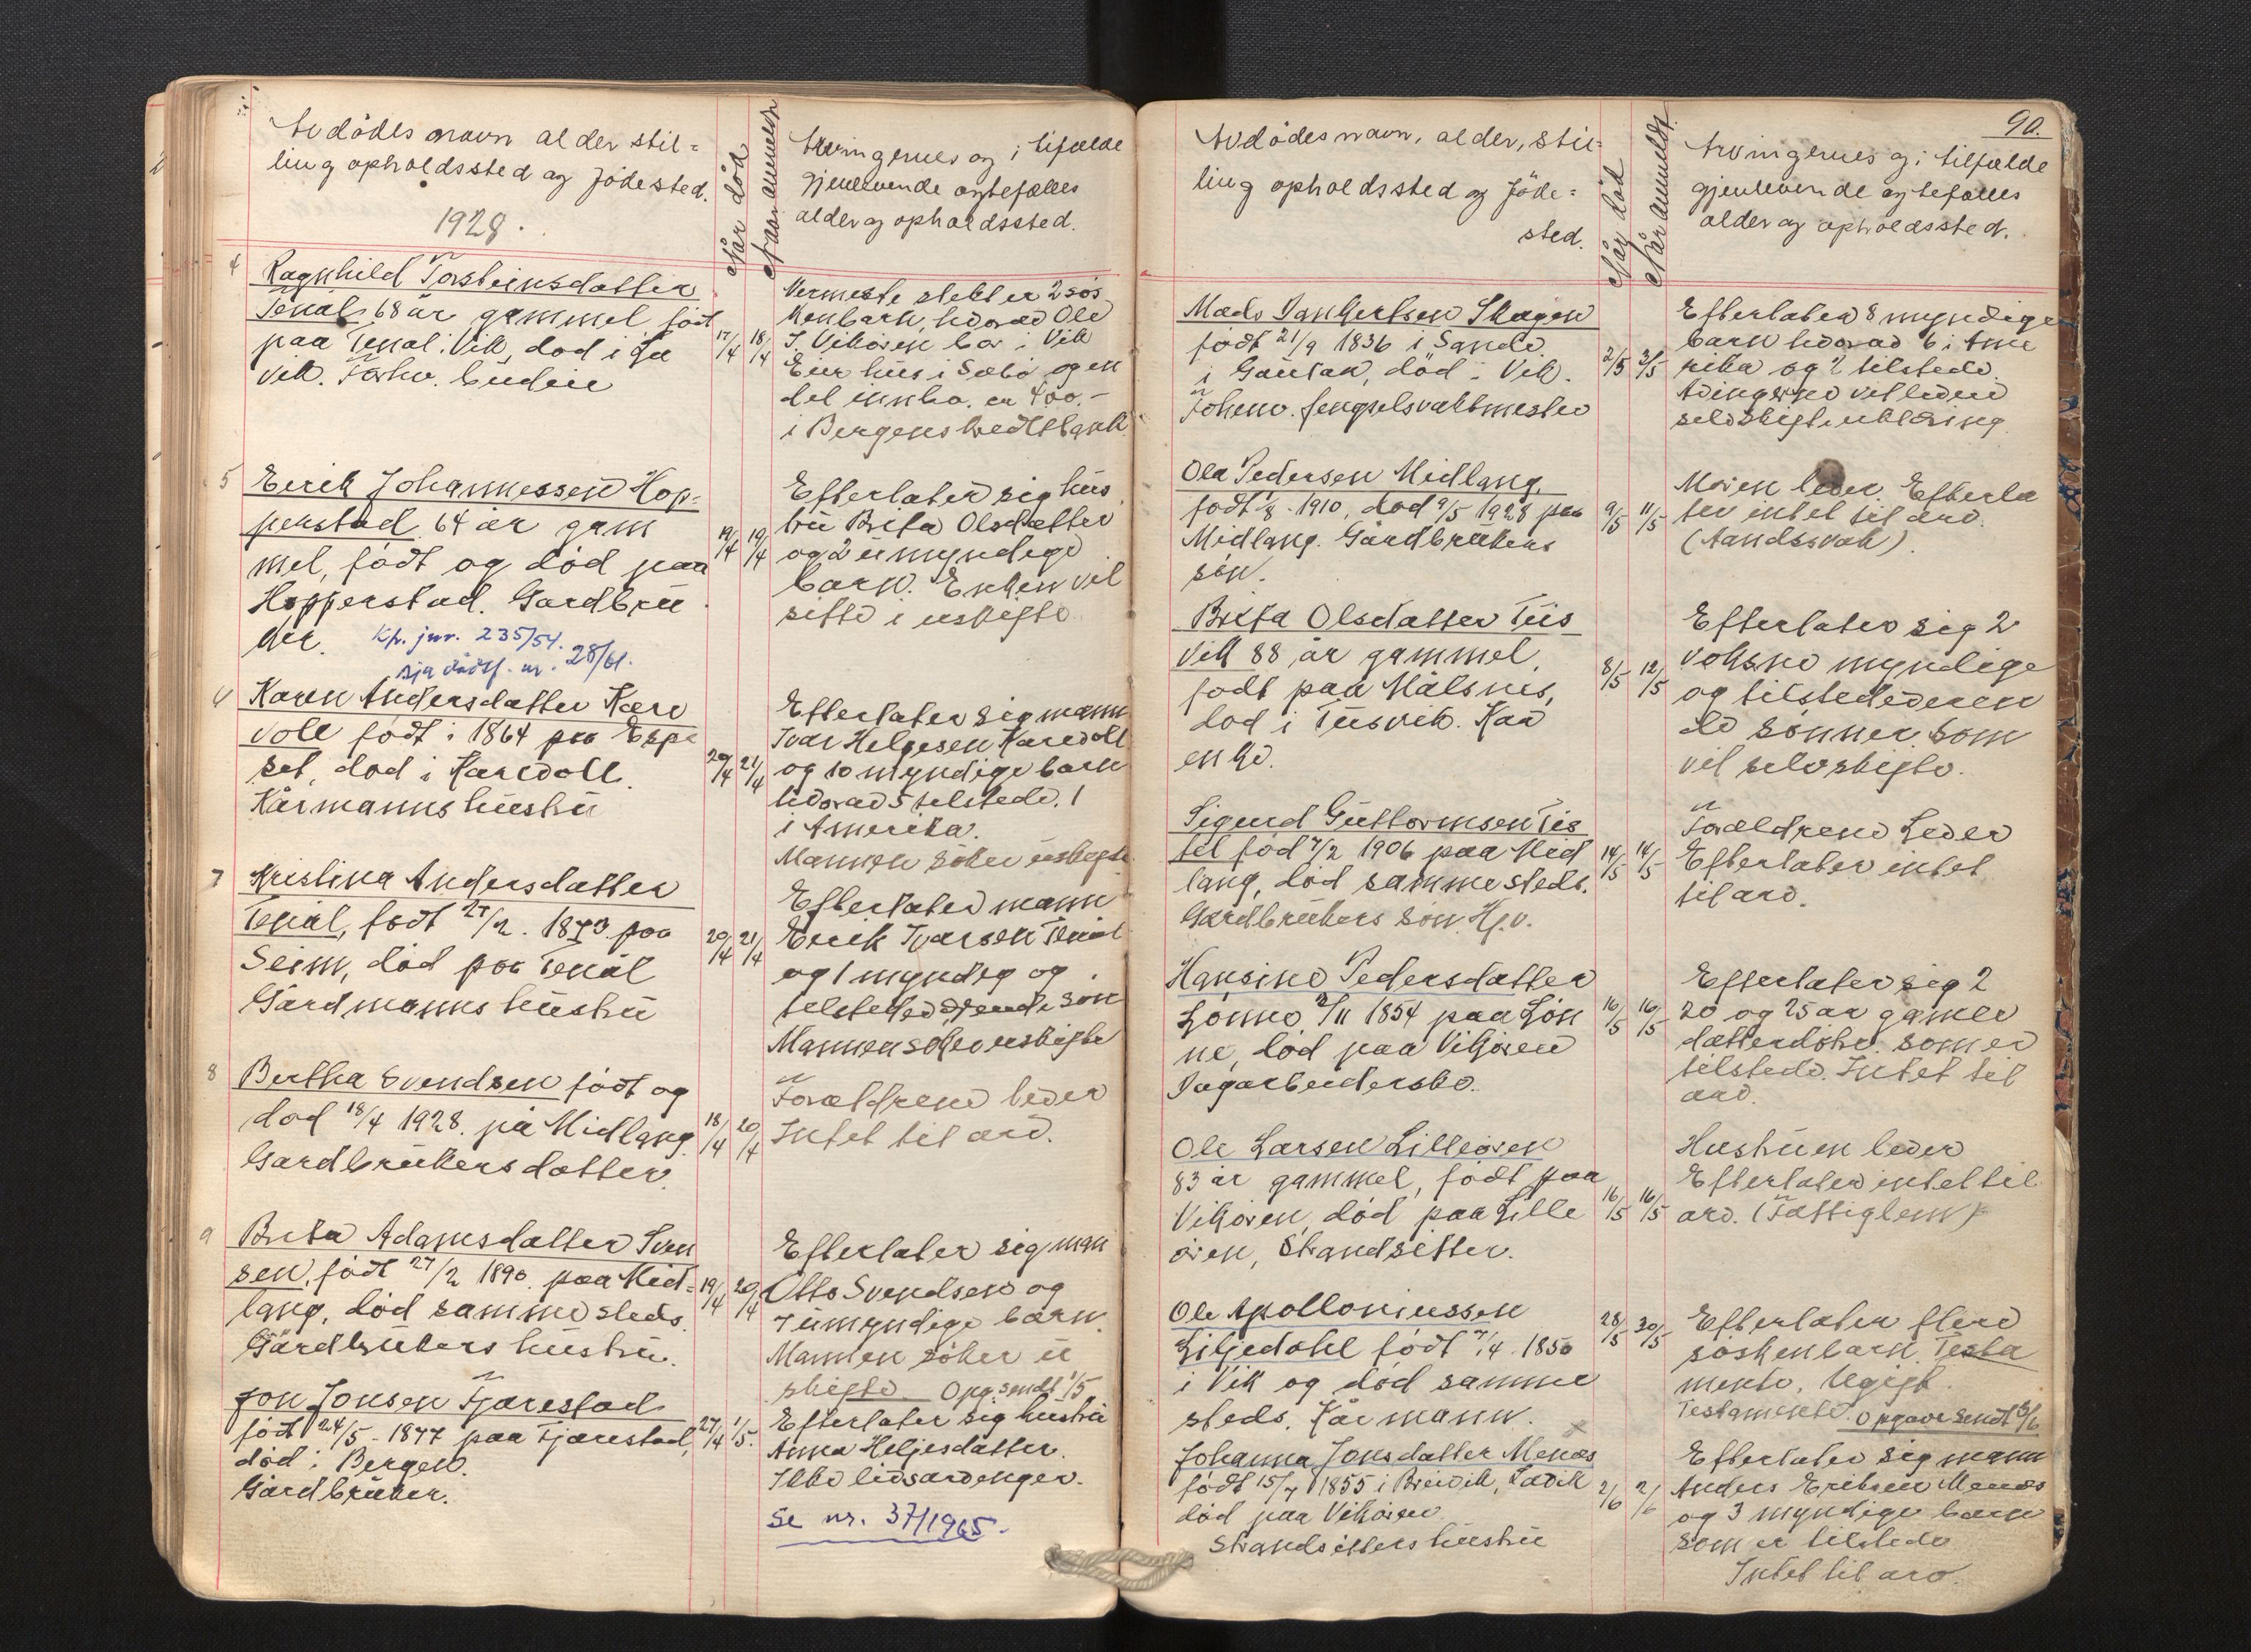 Avdødes navn alder stil=
ling opholdssted og fødested.
1928.
Når død
Naar anmeldt
Arvingernes og i tilfælde
gjenlevende ægtefælles
alder og opholdssted.
4
Ragnhild Torsteinsdatter
Tenål 68 år gammel født
paa Tenål i Vik, død i
vik. Forhv. budeie
17/4 18/4
Nermeste slekt er 2 søs
kenbarn, hvorav Ole
J. Vikøren bor i Vik
Eier hus i Sæbø og en
del innbo. ca 400.-
i Bergens kredittbank
5
Eirik Johannessen Hop=
perstad 64 år gam
mel, født og død paa
Hopperstad. Gardbru
ker.
Kp. jnr. 235/54.
sja dødsf. nr. 28/61.
19/4 19/4
Efterlater sig hus
tru Brita Olsdatter
og 2 umyndige
barn. Enken vil
sitte i uskifte
Karen Andersdatter Kare
voll født i 1864 paa Espe
set, død i Karevoll
Kårmanns hustru
20/4 21/4
Efterlater sig mann
Ivar Helgesen Karevoll
og 10 myndige barn
hvorav 5 tilstede. 1
i Amerika.
Mannen søker uskifte
7
Kristina Andersdatter
Tenål, født 27/2. 1873 paa
Seim, død paa Tenål
Gårdmanns hustru
20/4 21/4
Efterlater mann
Eirik Ivarsen Tenål
og 1 myndig og
tilstedeværende søn
Mannen søker uskifte
8
Bertha Svendsen født og
død 18/4 1928. på Midlang.
Gardbrukers datter
18/4 20/4
Forældrene lever
Intet til arv.
9
Brita Adamsdatter Sven
sen, født 27/2 1890. paa Mid=
lang, død samme steds.
Gårdbrukers hustru.
19/4 20/4
Efterlater sig man
Otto Svendsen og
7 umyndige barn
Mannen søker u
skifte. Opg. sendt 1/5
Jon Jonsen Fjærestad
født 24/5 - 1877 paa Fjærestad,
død i Bergen.
Gårdbruker.
27/4 1/5.
Efterlater sig hustru
Anna Heljesdatter.
Ikke livsarvenger.
Se nr. 37/1965.
90.
Avdødes navn, alder, stil=
ling opholdssted og føde=
sted.
Når død
Når anmeldt.
Arvingernes og i tilfælde
gjenlevende ægtefælles
alder og opholdssted.
Mads Dankertsen Skagen
født 21/9 1836 i Sande
i Gaular, død i Vik.
Forhenv. fengselsvaktmester
2/5 3/5
Efterlater 8 myndige
barn hvorav 6 i Ame
rika og 2 tilstede.
Arvingerne vil levere
selvskifteerklæring
Ola Pedersen Midlang,
født 1/8 1910, død 9/5 1928 paa
Midlang. Gårdbrukers
søn.
9/5 11/5
Moren lever. Efterla
ter intet til arv.
(Aandssvak).
Brita Olsdatter Tus
vik 88 år gammel,
født paa Målsnes,
død i Tusvik. Kår
enke.
8/5 12/5
Efterlater sig 2
voksne myndige
og tilstedeværen
de sønner som
vil selvskifte.
Sigurd Guttormsen Tis
tel født 7/2 1906 paa Mid
lang, død samme steds.
Gårdbrukers søn. Hj.v.
14/5 14/5
Forældrene Lever
Efterlater intet
til arv.
Hansine Pedersdatter
Lønne 2/11 1854 paa Løn
ne, død paa Vikøren
Dagarbeiderske.
16/5 16/5
Efterlater sig 2
20 og 25 år gamle
datterdøtre som er
tilstede. Intet til
arv.
Ole Larsen Lilleøren
83 år gammel, født paa
Vikøren, død paa Lille
øren, Strandsitter.
16/5 16/5
Hustruen lever
Efterlater intet til
arv. (Fattiglem)
Ole Apolloniussen
Liljedahl født 7/4. 1850
i Vik og død samme
steds. Kårmann.
28/5 30/5
Efterlater flere
søskenbarn. Testa
mente. Ugift
Testamente. Opgave sendt 8/6
Johanna Jonsdatter Menes
født 15/7 1855 i Breivik, Lavik
død paa Vikøren
Strandsitters hustru
2/6 2/6
Efterlater sig mann
Anders Eriksen Menes
og 3 myndige barn
som er tilstede
Intet til arv.